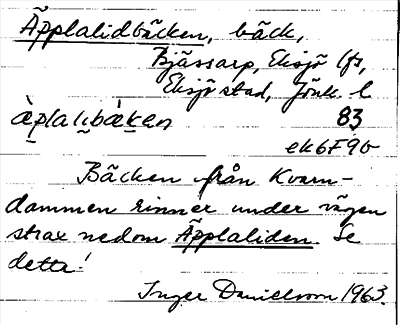 Äpplalidbäcken, bäck,
Bjässarp, Eksjö lfs,
Eksjö stad, Jönk. l
àplalibàken 83
ek 6F9b
Bäcken från Kvarn-
dammen rinner under vägen
strax nedom Äpplaliden. Se
detta!
Inger Danielsson 1963.